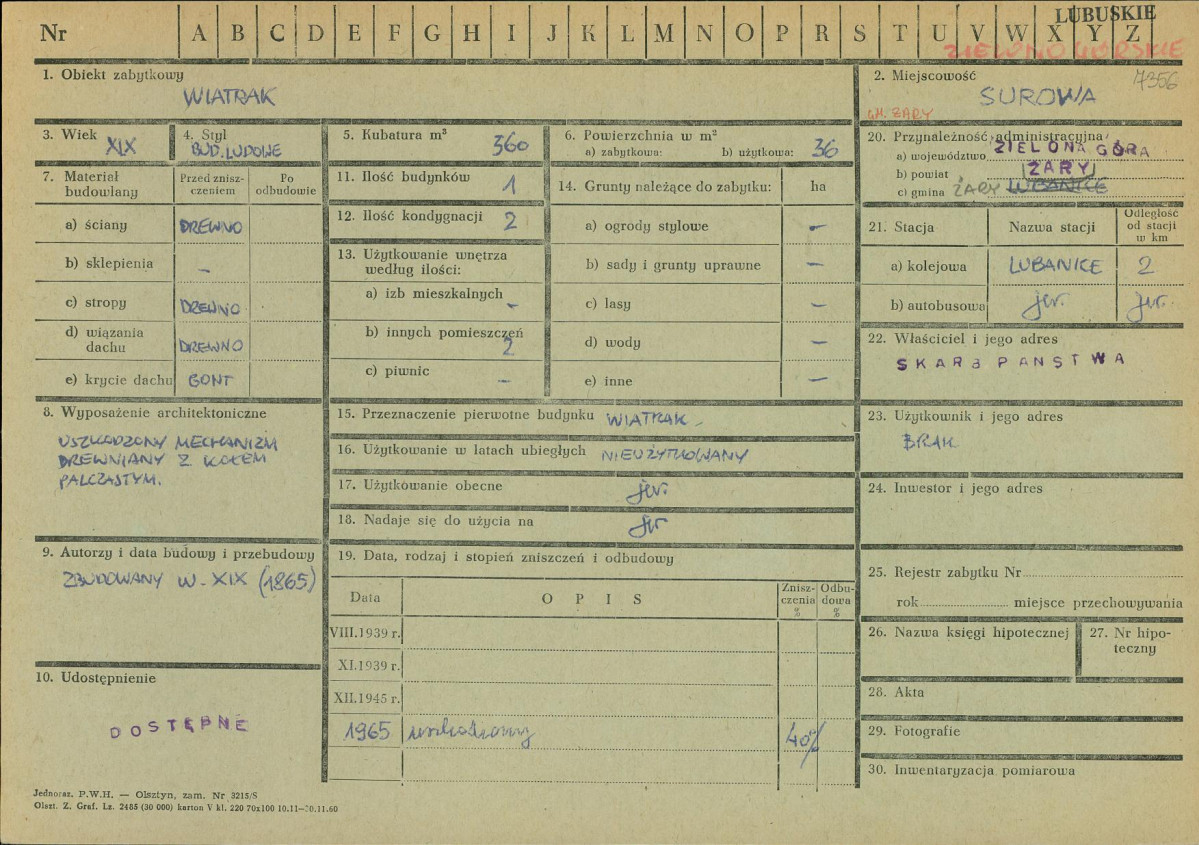 LUBUSKIE
Nr A B C D E F G H I J K L M N O P R S T U V W X Y Z
ZIELONOGÓRSKIE
1. Obiekt zabytkowy
WIATRAK
2. Miejscowość 7356
SUROWA
GM. ŻARY
3. Wiek
XIX
4. Styl
BUD. LUDOWE
5. Kubatura m³
360
6. Powierzchnia w m²
a) zabytkowa: b) użytkowa: 36
20. Przynależność administracyjna
a) województwo ZIELONA GÓRA
b) powiat ŻARY
c) gmina ŻARY LUBANICE
7. Materiał budowlany
Przed zniszczeniem
Po odbudowie
a) ściany DREWNO
b) sklepienia –
c) stropy DREWNO
d) wiązania dachu DREWNO
e) krycie dachu GONT
11. Ilość budynków 1
12. Ilość kondygnacji 2
13. Użytkowanie wnętrza według ilości:
a) izb mieszkalnych –
b) innych pomieszczeń 2
c) piwnic –
14. Grunty należące do zabytku: ha
a) ogrody stylowe –
b) sady i grunty uprawne –
c) lasy –
d) wody –
e) inne –
21. Stacja Nazwa stacji Odległość od stacji w km
a) kolejowa LUBANICE 2
b) autobusowa jw. jw.
22. Właściciel i jego adres
SKARB PAŃSTWA
8. Wyposażenie architektoniczne
USZKODZONY MECHANIZM
DREWNIANY Z KOŁEM
PALCZASTYM.
15. Przeznaczenie pierwotne budynku WIATRAK
16. Użytkowanie w latach ubiegłych NIEUŻYTKOWANY
17. Użytkowanie obecne jw.
18. Nadaje się do użycia na jw
23. Użytkownik i jego adres
BRAK
24. Inwestor i jego adres
9. Autorzy i data budowy i przebudowy
ZBUDOWANY W. XIX (1865)
19. Data, rodzaj i stopień zniszczeń i odbudowy
Data OPIS Zniszczenia % Odbudowa %
VIII.1939 r.
XI.1939 r.
XII.1945 r.
1965 uszkodzony 40%
25. Rejestr zabytku Nr
rok miejsce przechowywania
26. Nazwa księgi hipotecznej
27. Nr hipoteczny
28. Akta
29. Fotografie
30. Inwentaryzacja pomiarowa
10. Udostępnienie
DOSTĘPNE
Jednoraz. P.W.H. — Olsztyn, zam. Nr 3215/S
Olszt. Z. Graf. Lz. 2485 (30 000) karton V kl. 220 70x100 10.11—30.11.60